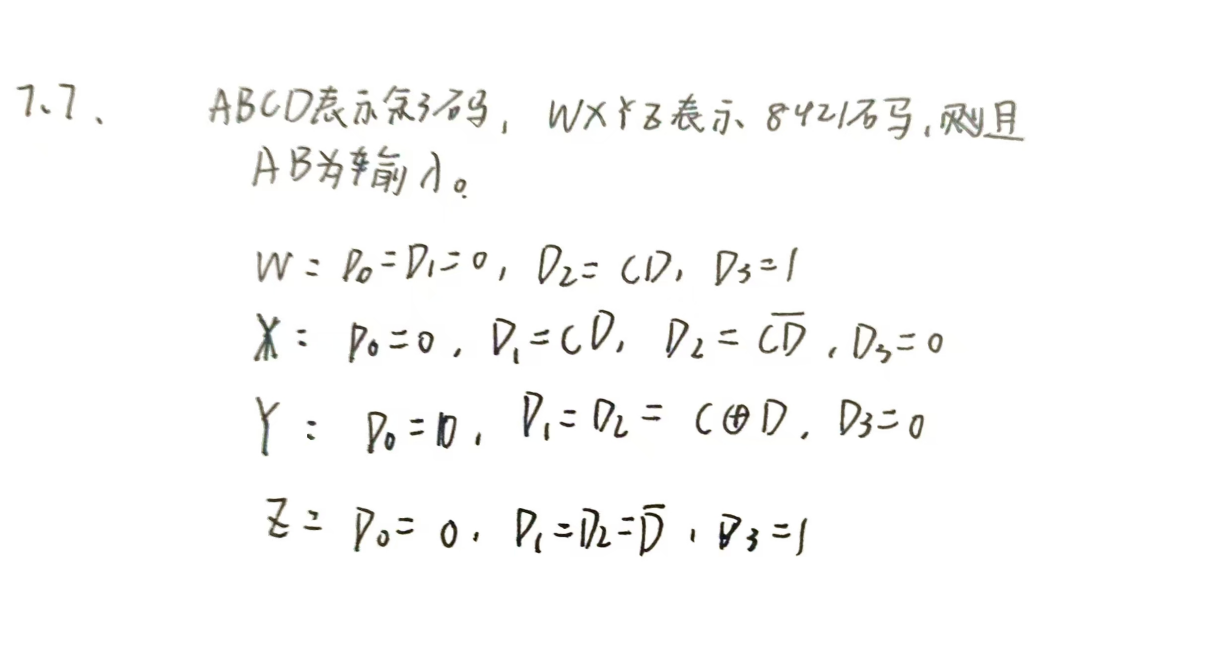 7.7. ABCD表示余3码, WXYZ表示8421码,则且
AB为输入。
W: D₀=D₁=0, D₂=CD, D₃=1
X: D₀=0, D₁=CD, D₂=\overline{CD}, D₃=0
Y: D₀=0, D₁=D₂=C⊕D, D₃=0
Z= D₀=0, D₁=D₂=\overline{D}, D₃=1